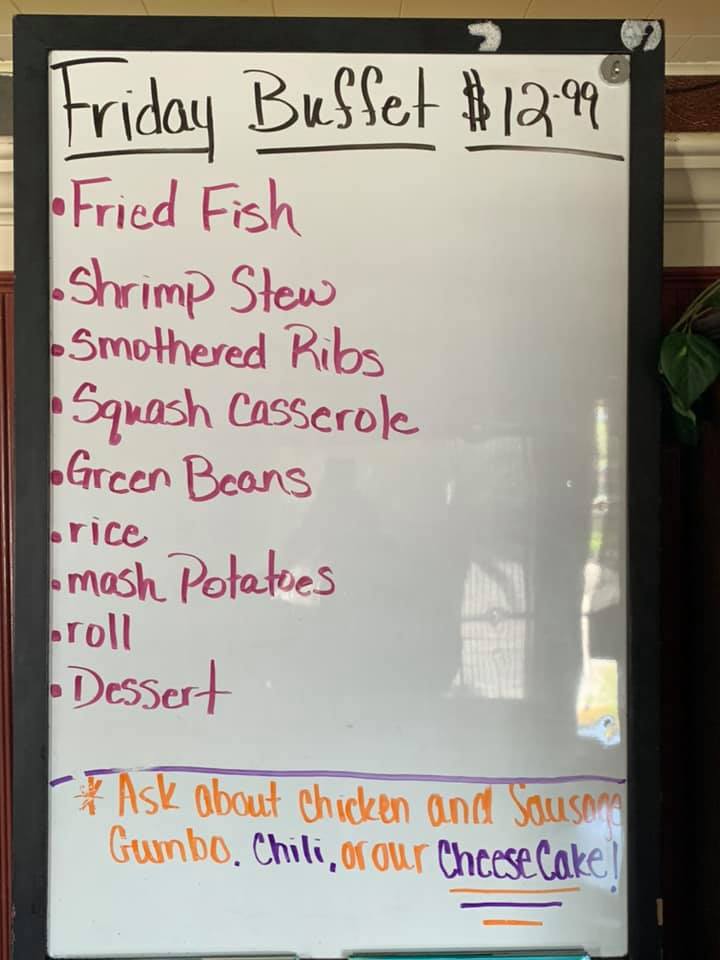 Friday Buffet $12.99
• Fried Fish
• Shrimp Stew
• Smothered Ribs
• Squash Casserole
• Green Beans
• rice
• mash Potatoes
• roll
• Dessert
* Ask about chicken and Sausage
Gumbo. Chili, or our CheeseCake!